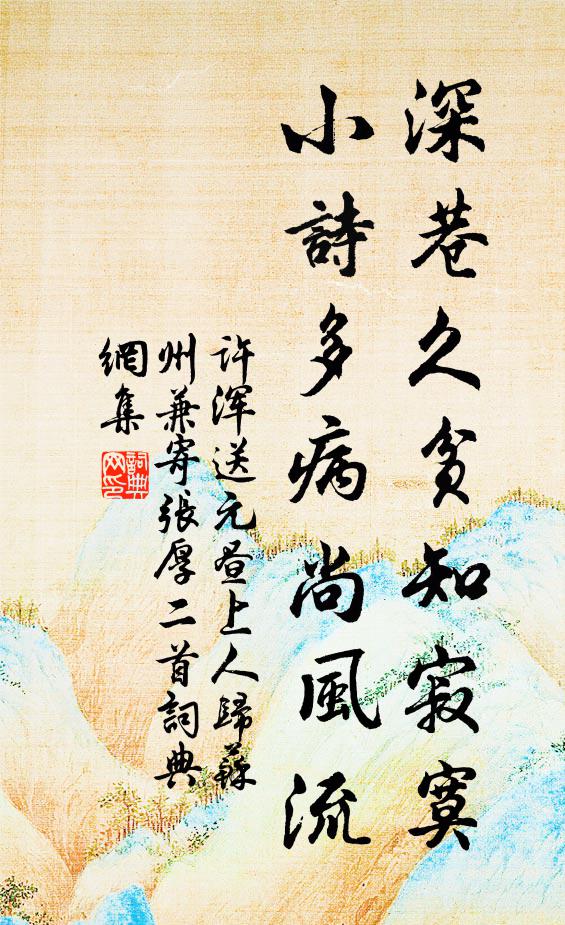 深巷久貧知寂寞
小詩多病尚風流
許渾送元晝上人歸蘇
州兼寄張厚二首詞典
網集
詞典
网印